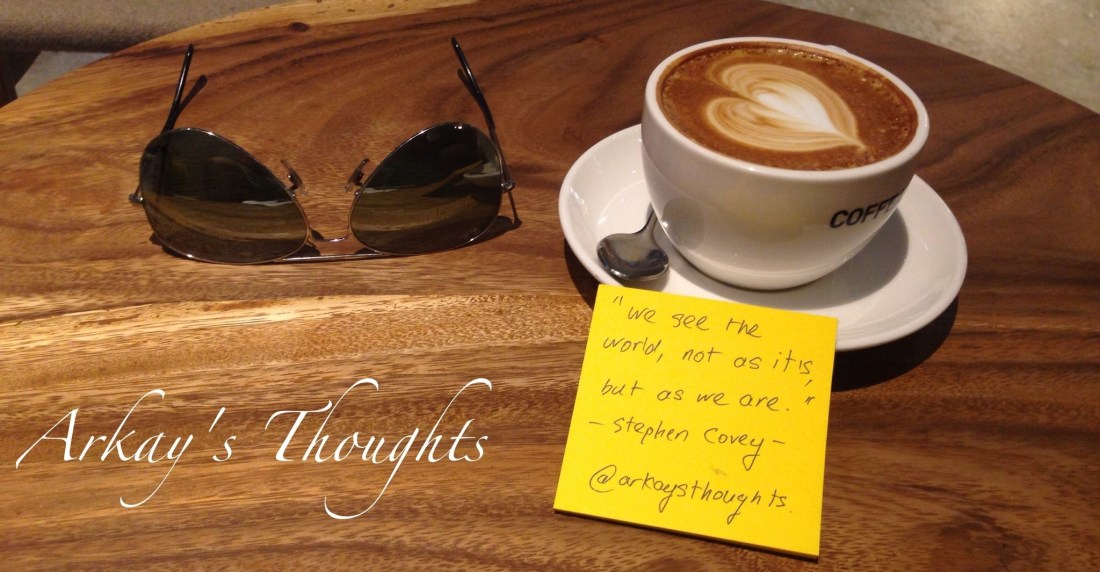 COFFE
"we see the
world, not as it is,
but as we are."
- Stephen Covey -
@arkaysthoughts.
Arkay's Thoughts